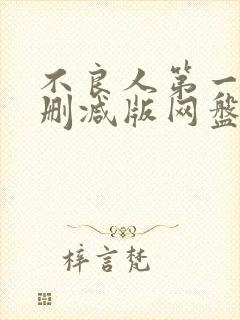 不良人第一
删减版网盘
梓言梵